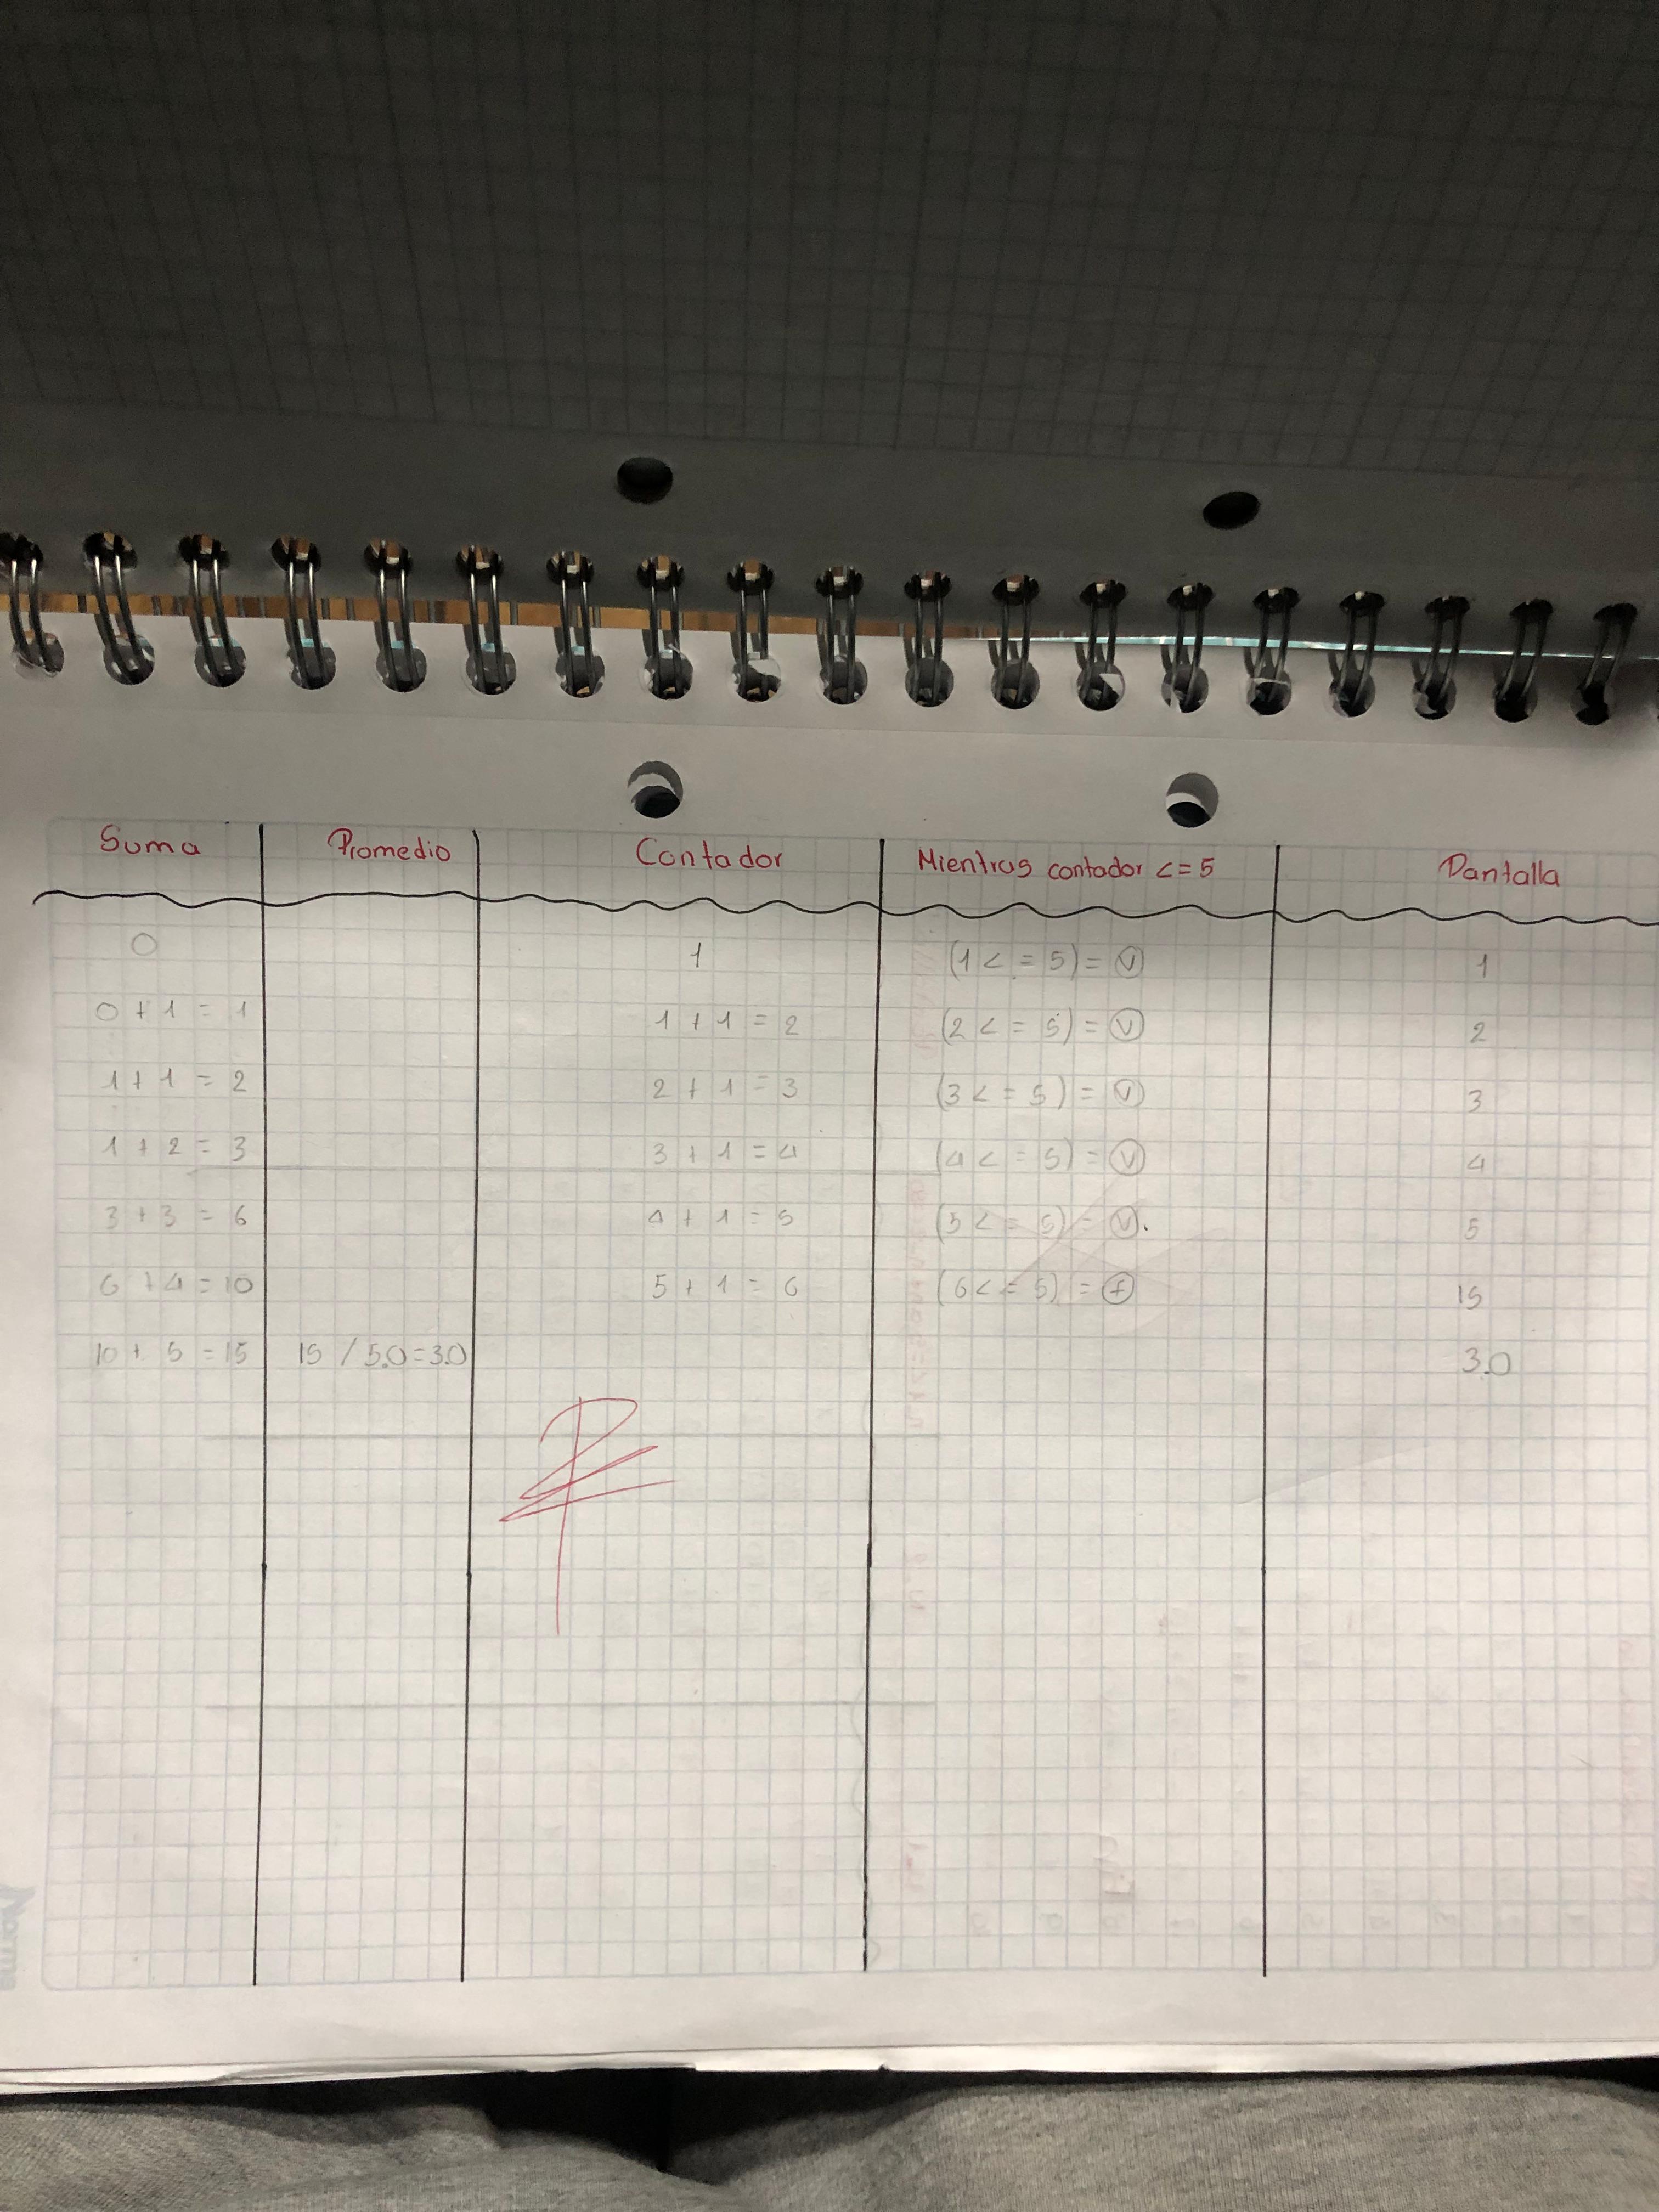 Suma Promedio Contador Mientras contador <=5 Pantalla
0 1 (1<=5)=V 1
0+1=1 1+1=2 (2<=5)=V 2
1+1=2 2+1=3 (3<=5)=V 3
1+2=3 3+1=4 (4<=5)=V 4
3+3=6 4+1=5 (5<=5)=V. 5
6+4=10 5+1=6 (6<=5)=f 15
10+5=15 15/5.0=3.0 3.0
Norma